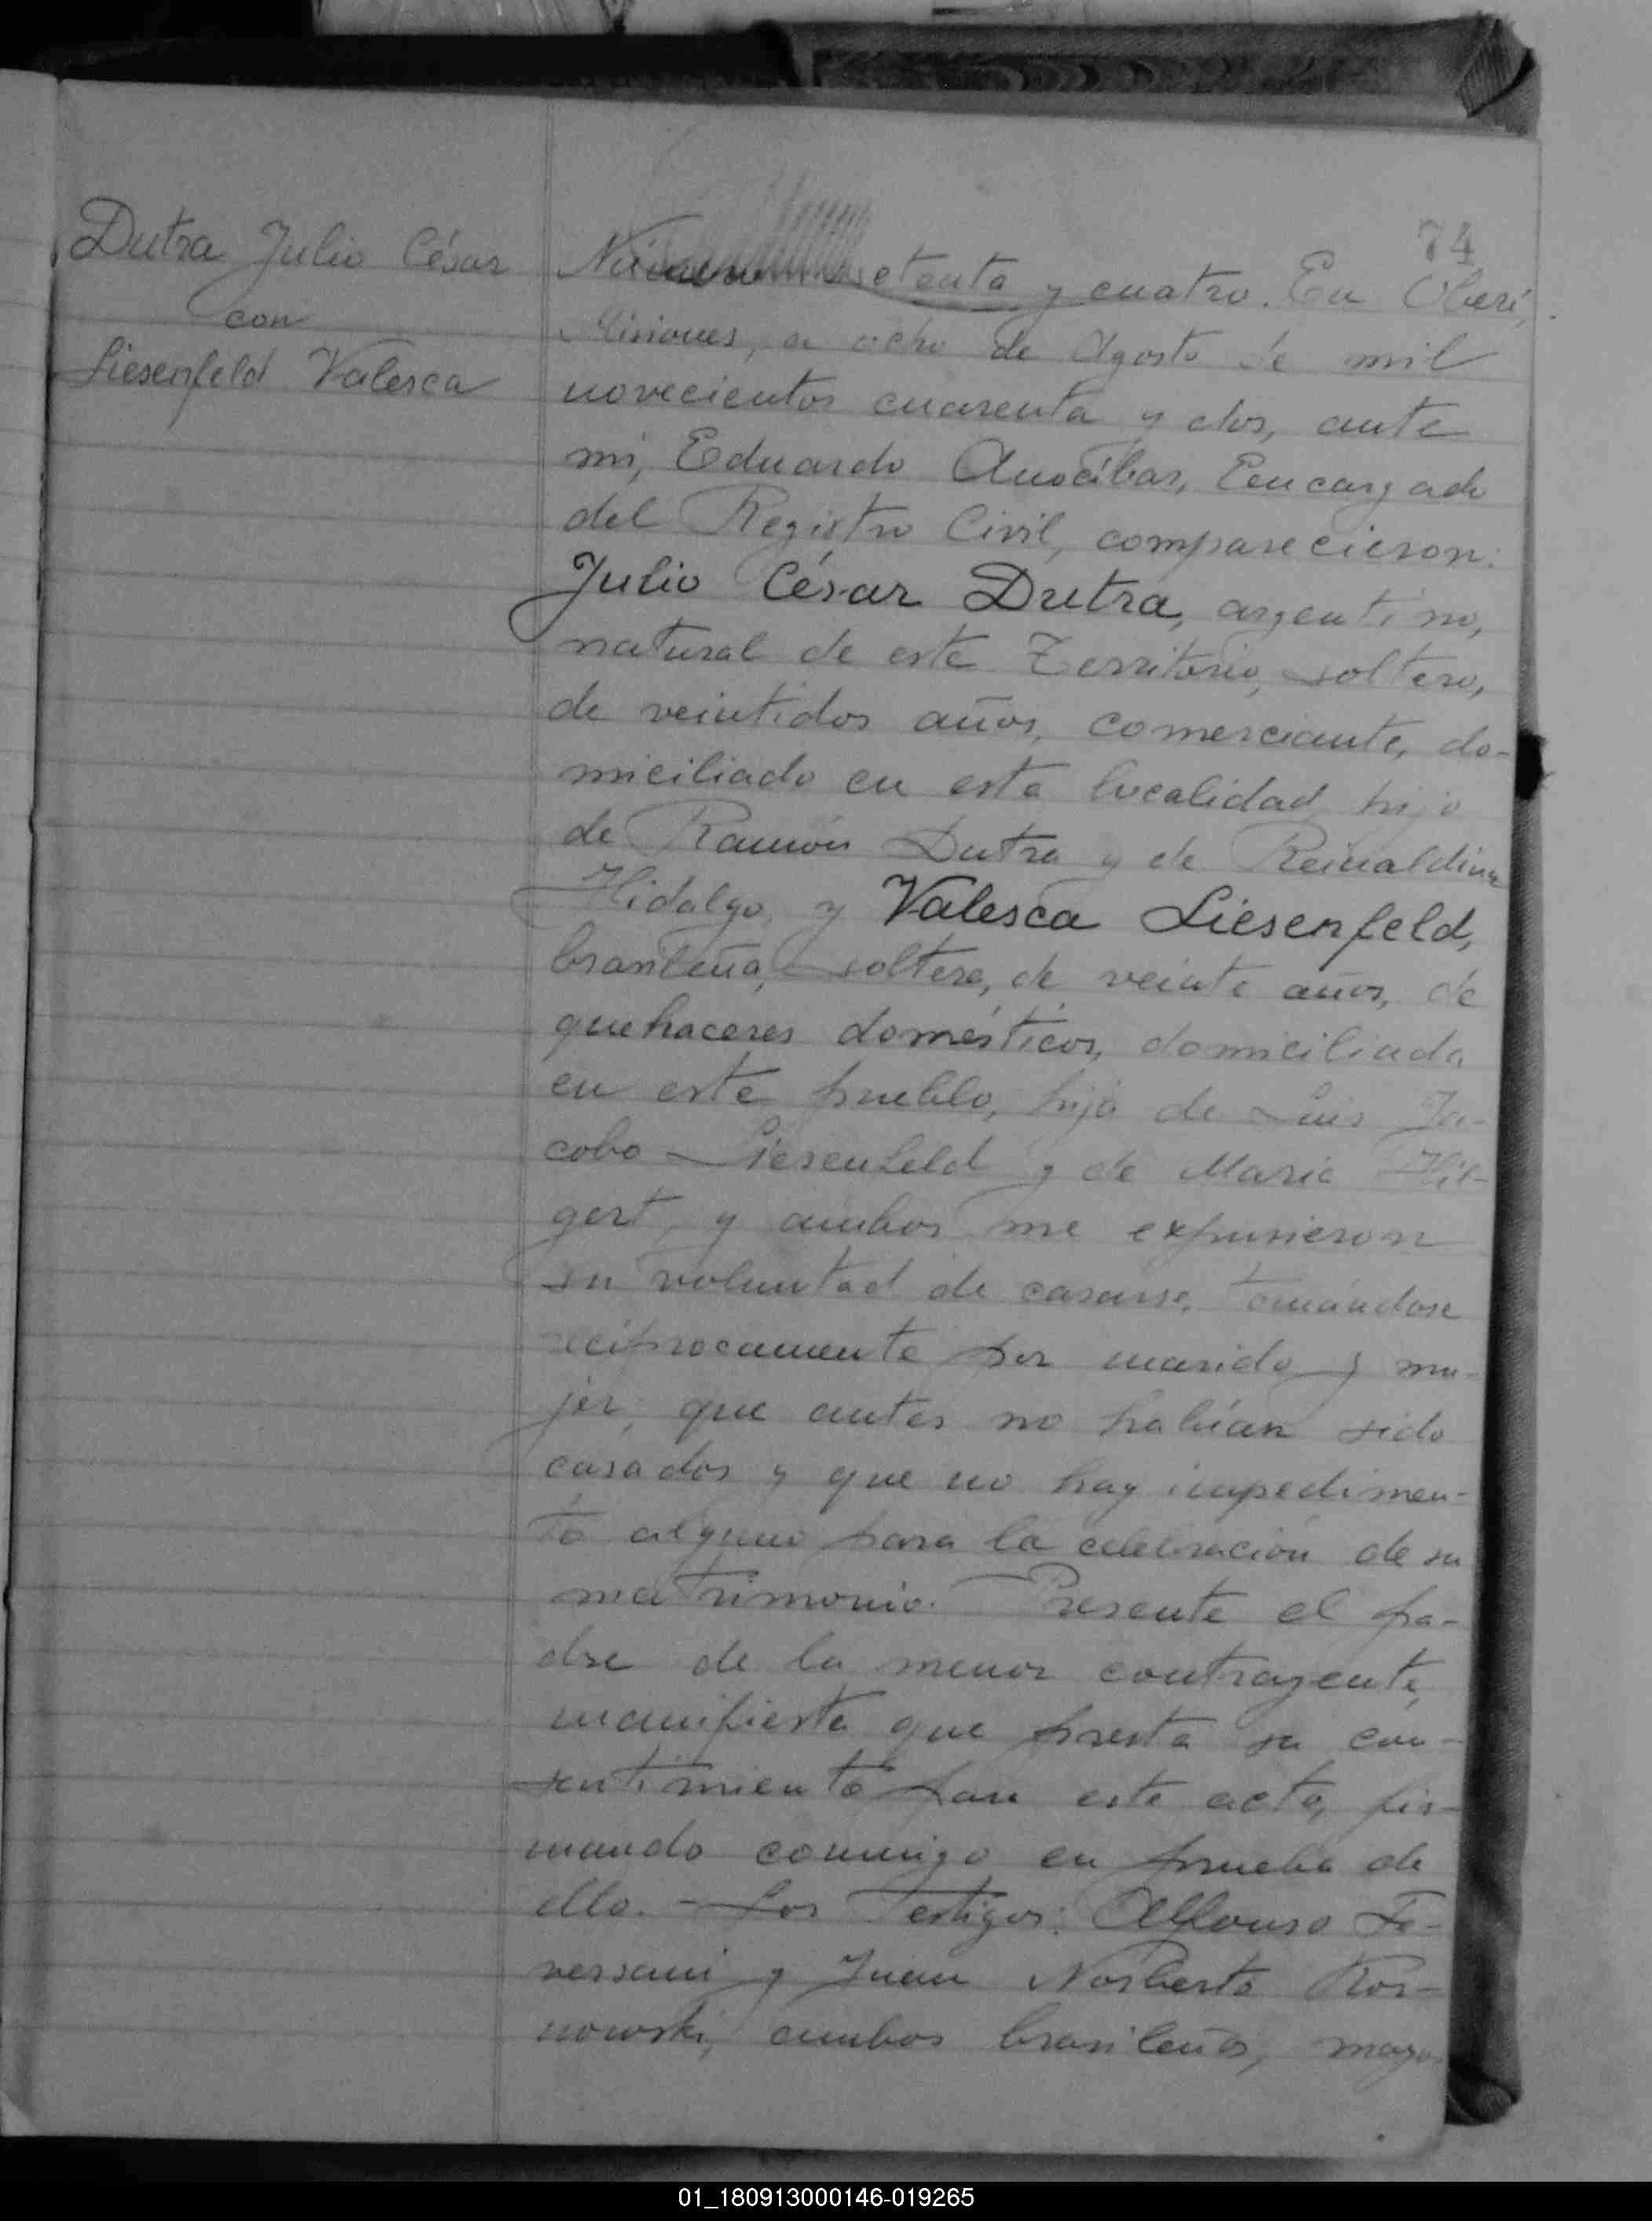 74
Dutra Julio César
con
Liesenfeld Valesca
Número setenta y cuatro. En Oberá,
Misiones, a ocho de Agosto de mil
novecientos cuarenta y dos, ante
mi, Eduardo Anocíbar, Encargado
del Registro Civil, comparecieron:
Julio César Dutra, argentino,
natural de este Territorio, soltero,
de veintidos años, comerciante, do-
miciliado en esta localidad, hijo
de Ramón Dutra y de Reinaldina
Hidalgo, y Valesca Liesenfeld,
brasileña, soltera, de veinte años, de
quehaceres domésticos, domiciliada
en este pueblo, hija de Luis Ja-
cobo Liesenfeld y de Maria Hil-
gert, y ambos me expusieron
su voluntad de casarse, tomándose
recíprocamente por marido y mu-
jer, que antes no habían sido
casados y que no hay impedimen-
to alguno para la celebración de su
matrimonio. Presente el pa-
dre de la menor contrayente,
manifiesta que presta su con-
sentimiento para este acto, fir-
mando conmigo en prueba de
ello. - Los Testigos: Alfonso Fa-
versani y Juan Norberto Kor-
nowski, ambos brasileños, mayo
01_180913000146-019265